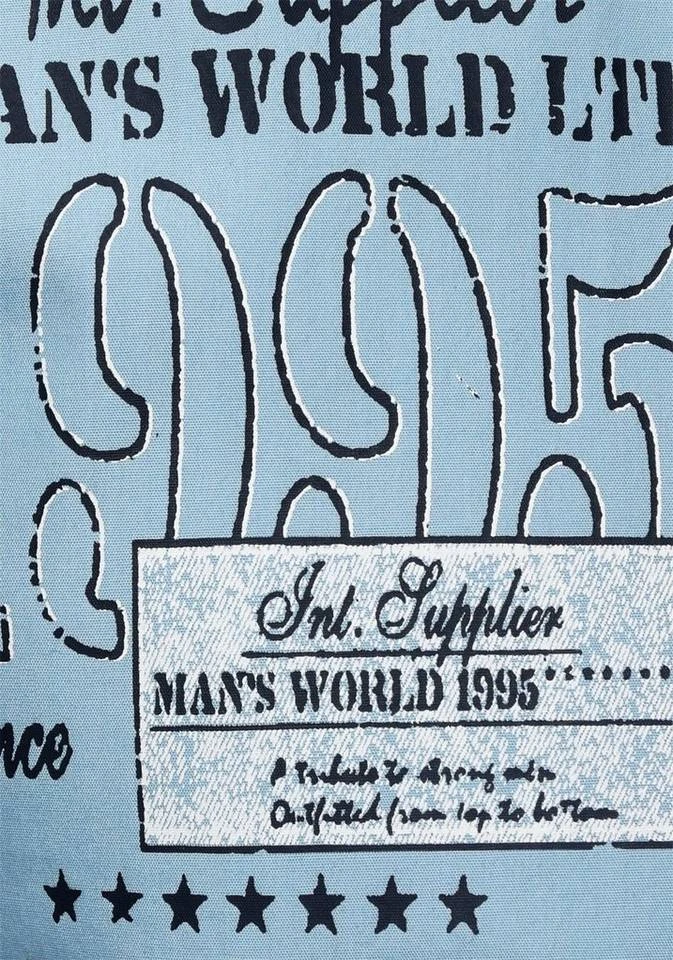 Int. Supplier
MAN'S WORLD LTD
995
Int. Supplier
MAN'S WORLD 1995
nce
A tribute to strong men
Outfitted from top to bottom